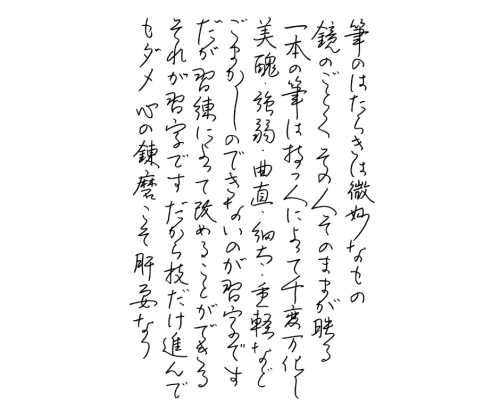 筆のはたらきは微妙なもの
鏡のごとく その人そのままが映る
一本の筆は持つ人によって千変万化し
美醜・強弱・曲直・細太・重軽など
ごまかしのできないのが習字です
だが習練によって改めることができる
それが習字です だから技だけ進んで
もダメ 心の錬磨こそ肝要なり